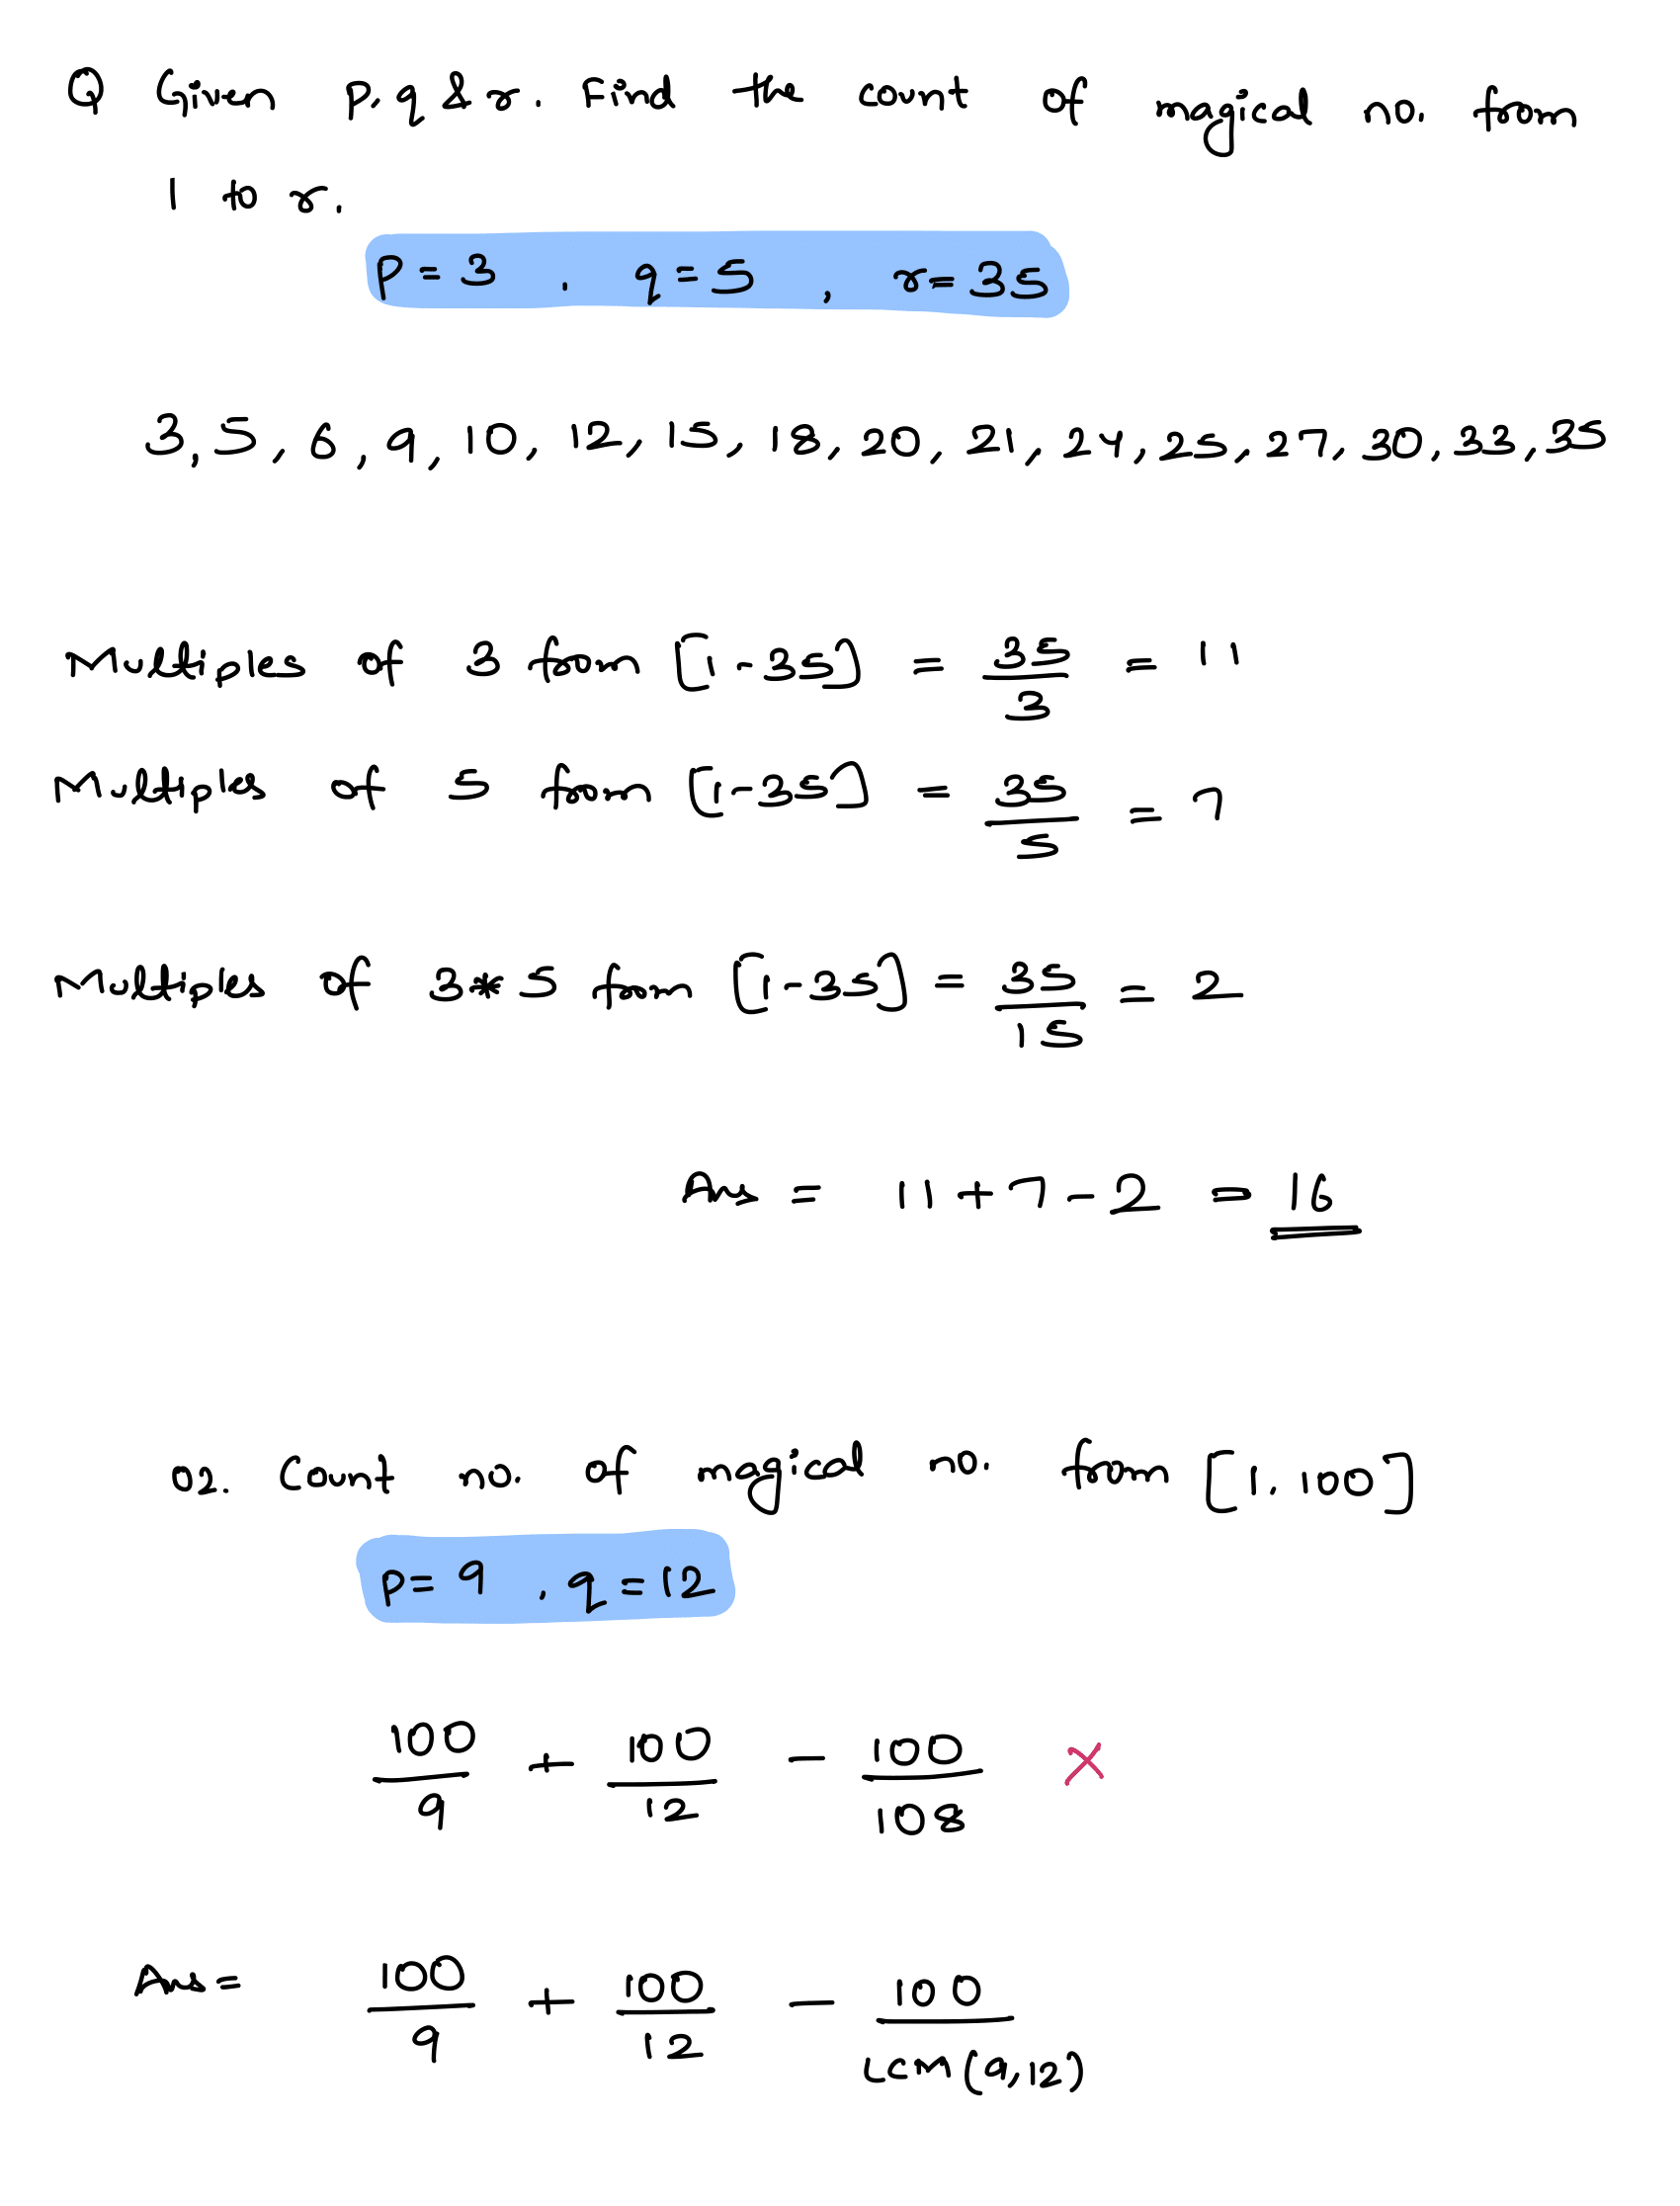 Q Given p, q & r. Find the count of magical no. from
1 to r.
p = 3 , q = 5 , r = 35
3, 5, 6, 9, 10, 12, 15, 18, 20, 21, 24, 25, 27, 30, 33, 35
Multiples of 3 from [1-35] = 35/3 = 11
Multiples of 5 from [1-35] = 35/5 = 7
Multiples of 3*5 from [1-35] = 35/15 = 2
Ans = 11 + 7 - 2 = 16
02. Count no. of magical no. from [1, 100]
p = 9 , q = 12
100/9 + 100/12 - 100/108 ×
Ans = 100/9 + 100/12 - 100/LCM(9,12)